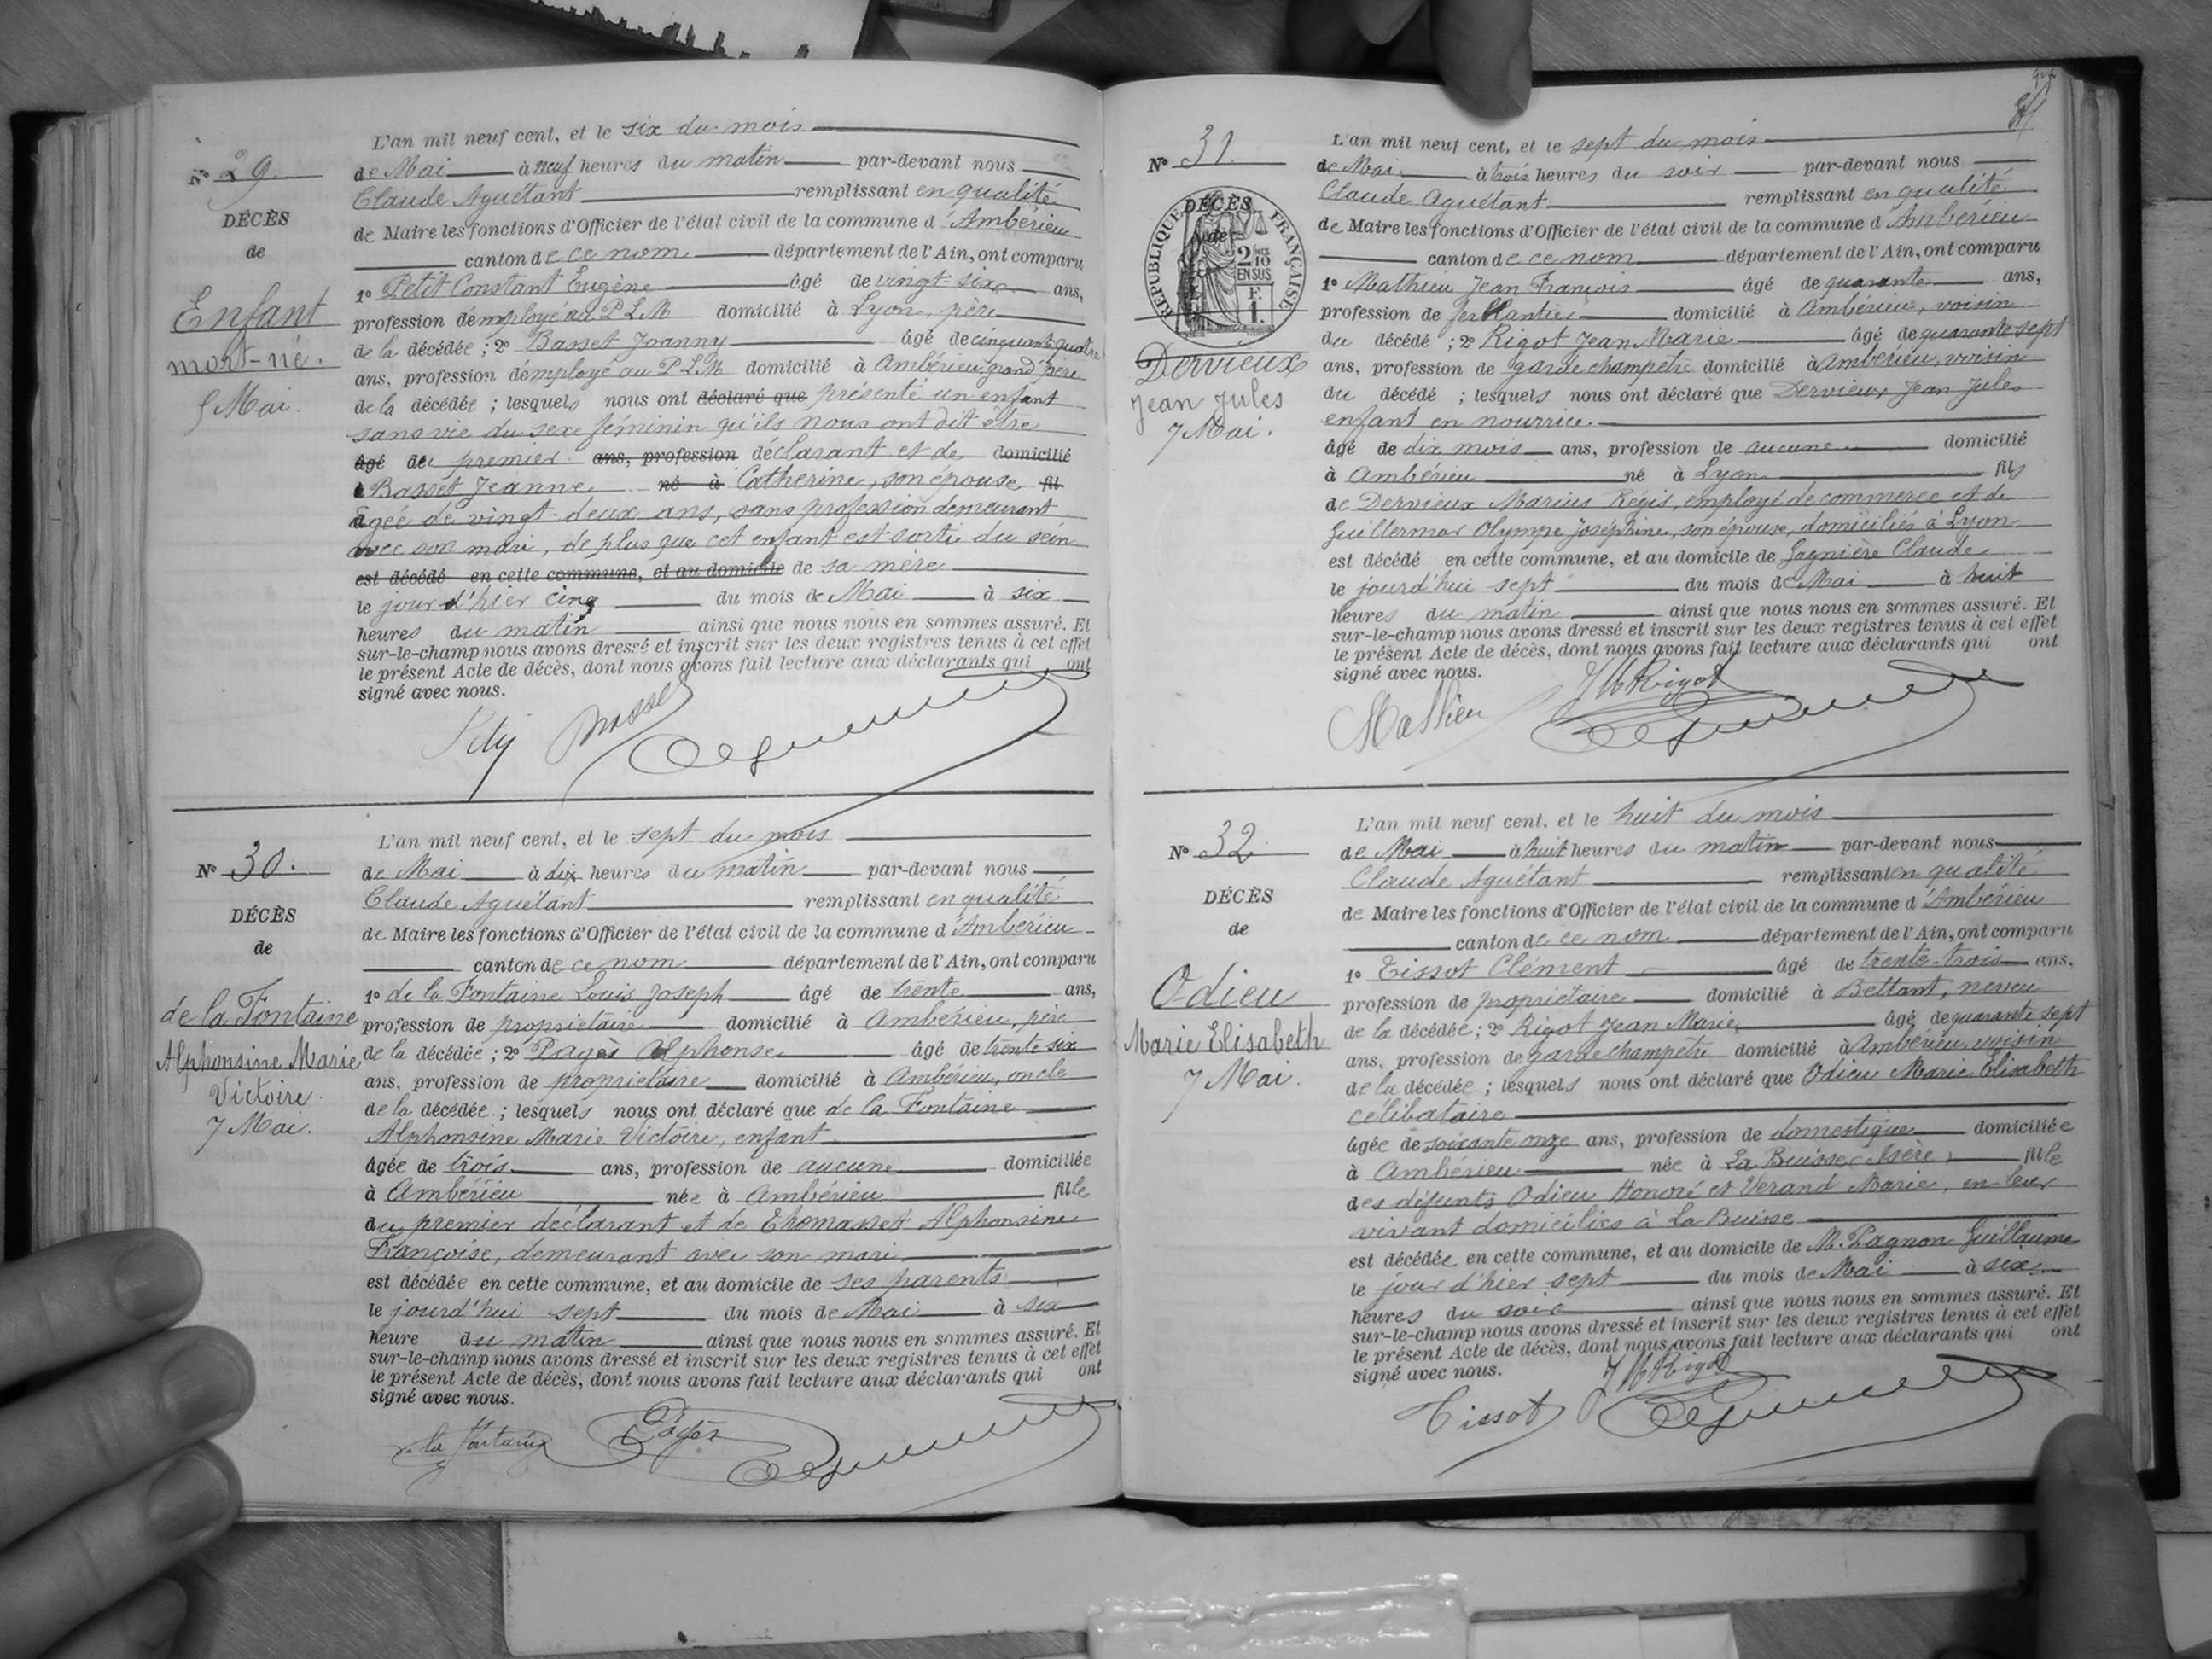 L'an mil neuf cent, et le six du mois
de Mai à neuf heures du matin par-devant nous
Claude Aguétant remplissant en qualité
de Maire les fonctions d'Officier de l'état civil de la commune d'Ambérieu
canton de ce nom département de l'Ain, ont comparu
1º Petit Constant Eugène âgé de vingt-six ans,
profession d'employé au P L M domicilié à Lyon, père
de la décédée ; 2º Basset Joanny âgé de cinquante quatre
ans, profession d'employé au P L M domicilié à Ambérieu, grand père
de la décédée ; lesquels nous ont déclaré que présenté un enfant
sans vie du sexe féminin qu'ils nous ont dit être
âgé du premier ans, profession déclarant et de domicilié
à Basset Jeanne né à Catherine, son épouse fil
âgée de vingt-deux ans, sans profession demeurant
avec son mari, de plus que cet enfant est sorti du sein
est décédé en cette commune, et au domicile de sa mère
le jour d'hier cinq du mois de Mai à six
heures du matin ainsi que nous nous en sommes assuré. Et
sur-le-champ nous avons dressé et inscrit sur les deux registres tenus à cet effet
le présent Acte de décès, dont nous avons fait lecture aux déclarants qui ont
signé avec nous.
Nº 29.
DÉCÈS
de
Enfant
mort-né.
5 Mai.
Petit Basset
L'an mil neuf cent, et le sept du mois
de Mai à dix heures du matin par-devant nous
Claude Aguétant remplissant en qualité
de Maire les fonctions d'Officier de l'état civil de la commune d'Ambérieu
canton de ce nom département de l'Ain, ont comparu
1º de la Fontaine Louis Joseph âgé de trente ans,
profession de propriétaire domicilié à Ambérieu, père
de la décédée ; 2º Pagès Alphonse âgé de trente six
ans, profession de propriétaire domicilié à Ambérieu, oncle
de la décédée ; lesquels nous ont déclaré que de la Fontaine
Alphonsine Marie Victoire, enfant
âgée de trois ans, profession de aucune domiciliée
à Ambérieu née à Ambérieu fille
du premier déclarant et de Thomasset Alphonsine
Françoise, demeurant avec son mari
est décédée en cette commune, et au domicile de ses parents
le jourd'hui sept du mois de Mai à six
heure du matin ainsi que nous nous en sommes assuré. Et
sur-le-champ nous avons dressé et inscrit sur les deux registres tenus à cet effet
le présent Acte de décès, dont nous avons fait lecture aux déclarants qui ont
signé avec nous.
Nº 30.
DÉCÈS
de
de la Fontaine
Alphonsine Marie
Victoire.
7 Mai.
de la Fontaine Pagès
L'an mil neuf cent, et le sept du mois
de Mai à trois heures du soir par-devant nous
Claude Aguétant remplissant en qualité
de Maire les fonctions d'Officier de l'état civil de la commune d'Ambérieu
canton de ce nom département de l'Ain, ont comparu
1º Mathieu Jean François âgé de quarante ans,
profession de ferblantier domicilié à Ambérieu, voisin
du décédé ; 2º Rigot Jean Marie âgé de quarante sept
ans, profession de garde champêtre domicilié à Ambérieu, voisin
du décédé ; lesquels nous ont déclaré que Dervieux Jean Jules
enfant en nourrice.
âgé de dix mois ans, profession de aucune domicilié
à Ambérieu né à Lyon fils
de Dervieux Marius Régis, employé de commerce et de
Guillermar Olympe Joséphine, son épouse, domiciliés à Lyon
est décédé en cette commune, et au domicile de Gagnière Claude
le jourd'hui sept du mois de Mai à huit
heures du matin ainsi que nous nous en sommes assuré. Et
sur-le-champ nous avons dressé et inscrit sur les deux registres tenus à cet effet
le présent Acte de décès, dont nous avons fait lecture aux déclarants qui ont
signé avec nous.
Nº 31.
DÉCÈS
de
RÉPUBLIQUE FRANÇAISE
2/10
EN SUS
F.
1.
Dervieux
Jean Jules
7 Mai.
Mathieu J M Rigot
L'an mil neuf cent, et le huit du mois
de Mai à huit heures du matin par-devant nous
Claude Aguétant remplissant en qualité
de Maire les fonctions d'Officier de l'état civil de la commune d'Ambérieu
canton de ce nom département de l'Ain, ont comparu
1º Tissot Clément âgé de trente-trois ans,
profession de propriétaire domicilié à Bettant, neveu
de la décédée ; 2º Rigot Jean Marie âgé de quarante sept
ans, profession de garde champêtre domicilié à Ambérieu, voisin
de la décédée ; lesquels nous ont déclaré que Odieu Marie Elisabeth
célibataire
âgée de soixante onze ans, profession de domestique domiciliée
à Ambérieu née à La Buisse (Isère) fille
des défunts Odieu Honoré et Verand Marie, en leur
vivant domiciliés à La Buisse
est décédée en cette commune, et au domicile de M. Pagnon Guillaume
le jour d'hier sept du mois de Mai à six
heures du soir ainsi que nous nous en sommes assuré. Et
sur-le-champ nous avons dressé et inscrit sur les deux registres tenus à cet effet
le présent Acte de décès, dont nous avons fait lecture aux déclarants qui ont
signé avec nous.
Nº 32
DÉCÈS
de
Odieu
Marie Elisabeth
7 Mai.
Tissot J M Rigot